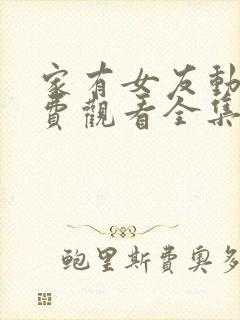 家有女友動
費觀看全集
鲍里斯費奥多